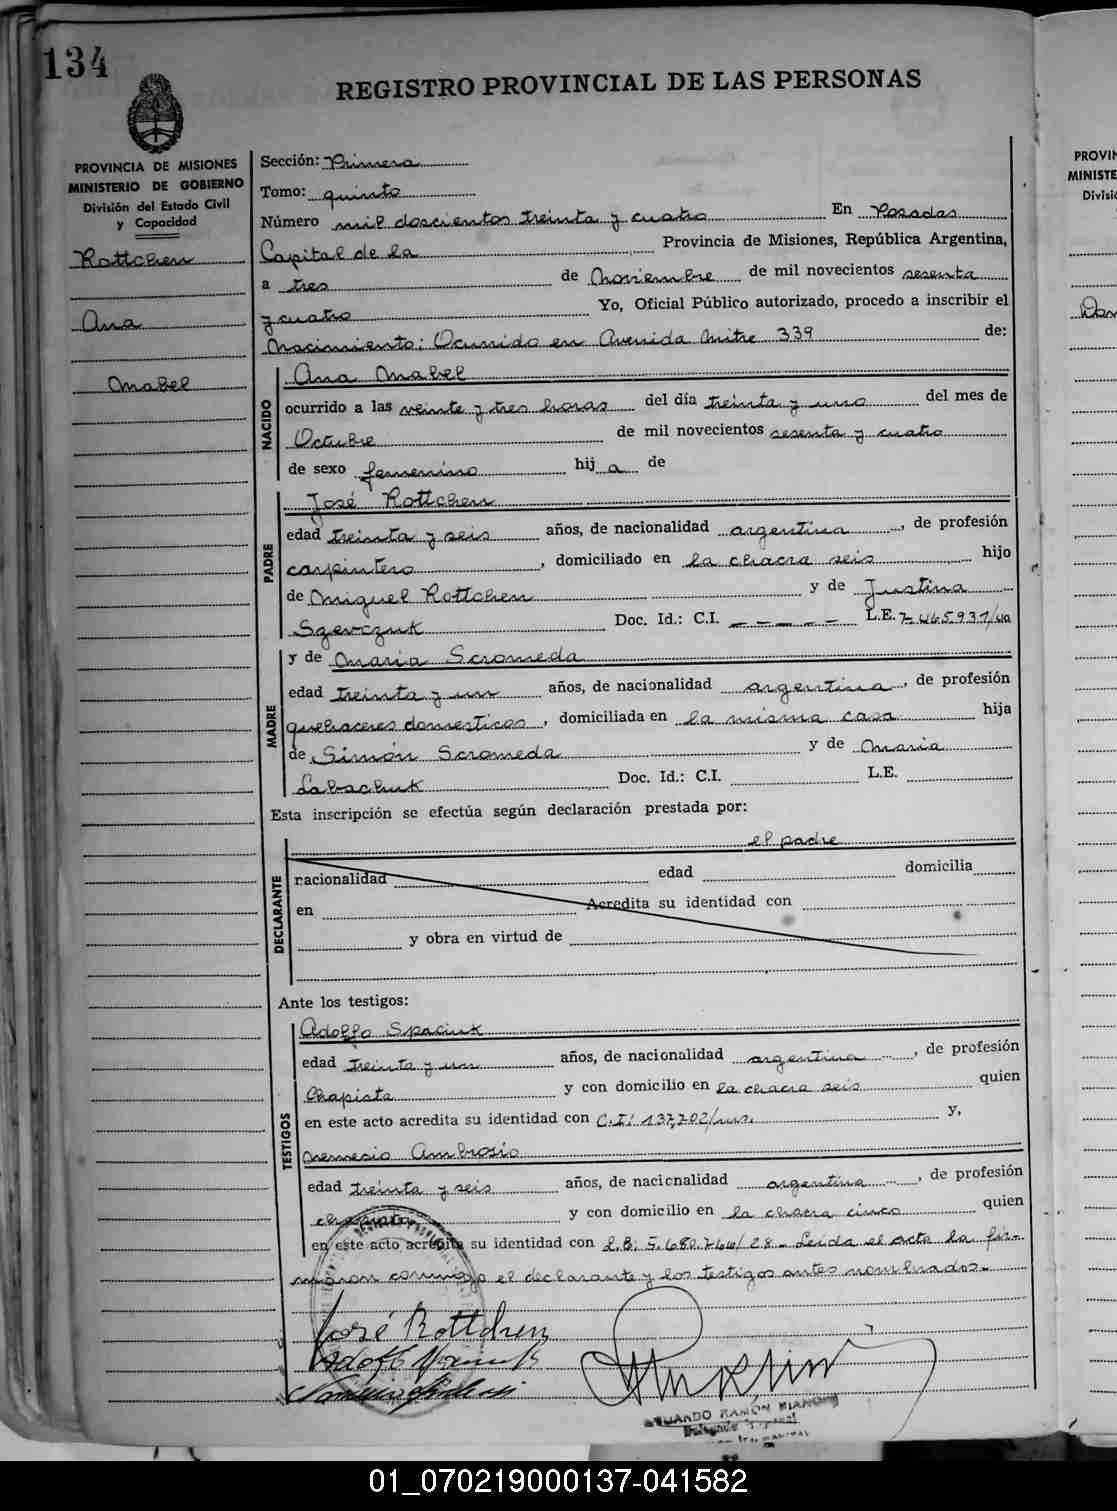 134
REGISTRO PROVINCIAL DE LAS PERSONAS
PROVINCIA DE MISIONES
MINISTERIO DE GOBIERNO
División del Estado Civil
y Capacidad
Rottchen
Ana
Mabel
Sección: Primera
Tomo: quinto
Número mil doscientos treinta y cuatro En Posadas
Capital de la Provincia de Misiones, República Argentina,
a tres de Noviembre de mil novecientos sesenta
y cuatro Yo, Oficial Público autorizado, procedo a inscribir el
Nacimiento: Ocurrido en Avenida Mitre 339 de:
NACIDO
Ana Mabel
ocurrido a las veinte y tres horas del día treinta y uno del mes de
Octubre de mil novecientos sesenta y cuatro
de sexo femenino hij a de
PADRE
José Rottchen
edad treinta y seis años, de nacionalidad argentina, de profesión
carpintero, domiciliado en la chacra seis hijo
de Miguel Rottchen y de Justina
Szevczuk Doc. Id.: C.I. – – – – – L.E. 7.465.931/
MADRE
y de Maria Scromeda
edad treinta y un años, de nacionalidad argentina, de profesión
quehaceres domesticos, domiciliada en la misma casa hija
de Simón Scromeda y de Maria
Labachuk Doc. Id.: C.I. L.E.
Esta inscripción se efectúa según declaración prestada por:
DECLARANTE
el padre
nacionalidad edad domicilia
en Acredita su identidad con
y obra en virtud de
Ante los testigos:
TESTIGOS
Adolfo Spaciuk
edad treinta y un años, de nacionalidad argentina, de profesión
Chapista y con domicilio en la chacra seis quien
en este acto acredita su identidad con C.I: 137,702/ y,
Nemesio Ambrosio
edad treinta y seis años, de nacionalidad argentina, de profesión
chapista y con domicilio en la chacra cinco quien
en este acto acredita su identidad con L.E: 5.680.766/28.- Leida el acta la fir-
maron conmigo el declarante y los testigos antes nombrados.-
José Rottchen
EDUARDO RAMÓN
PROVIN
MINISTE
Divisió
01_070219000137-041582